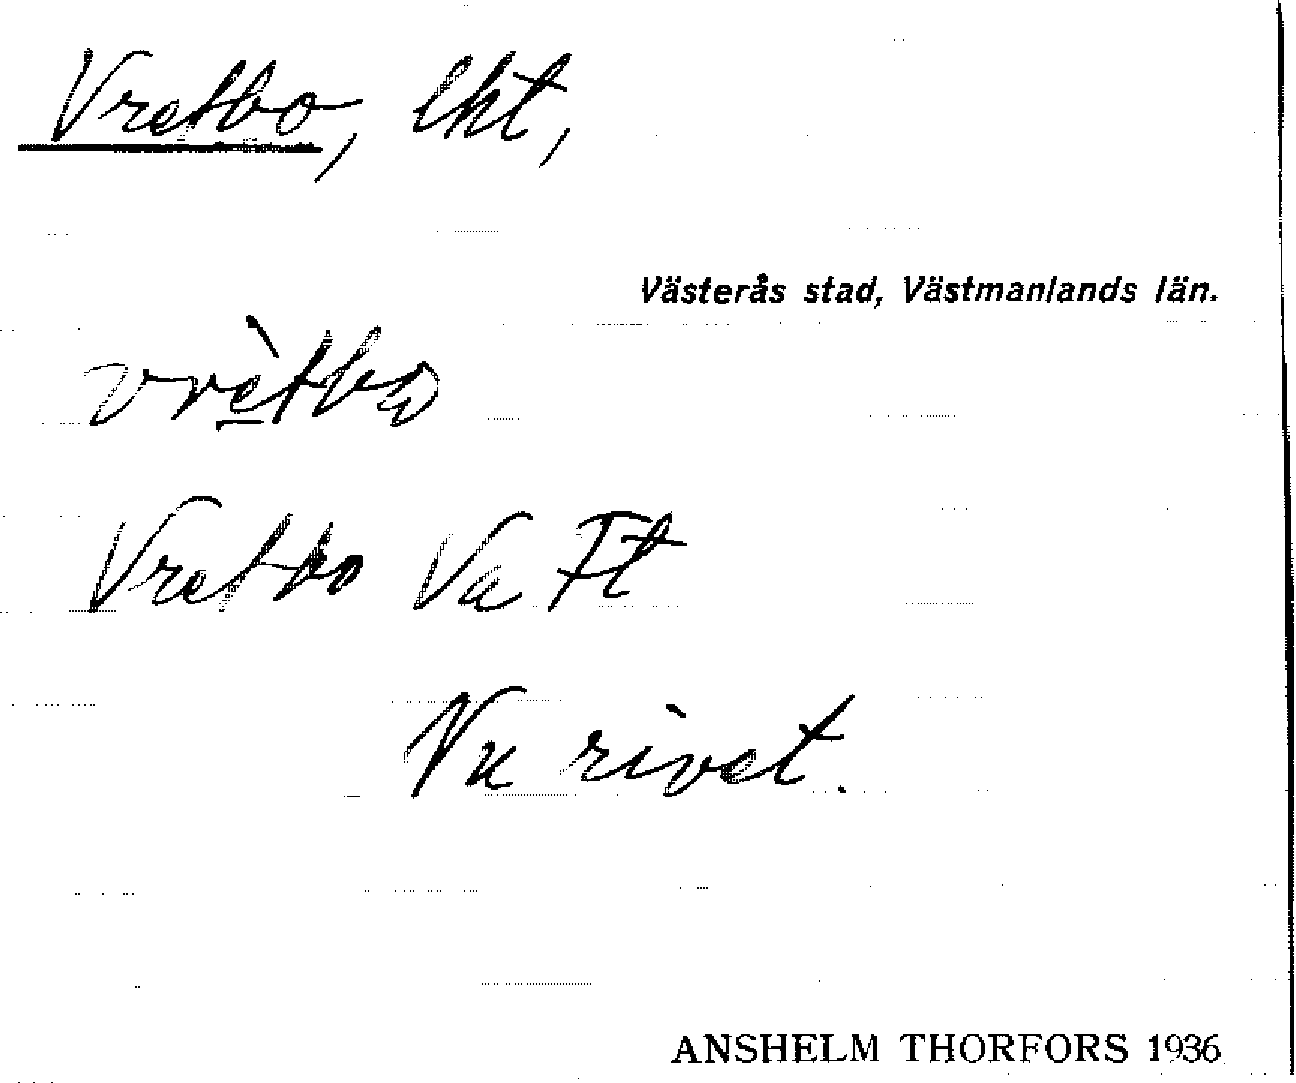 Vretbo, lht,
Västerås stad, Västmanlands län.
vrètbω
Vretbo Va Ft
Nu rivet.
ANSHELM THORFORS 1936